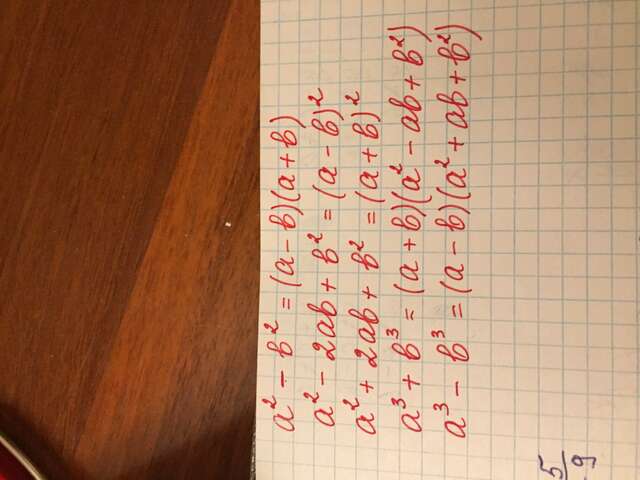 a² - b² = (a - b)(a + b)
a² - 2ab + b² = (a - b)²
a² + 2ab + b² = (a + b)²
a³ + b³ = (a + b)(a² - ab + b²)
a³ - b³ = (a - b)(a² + ab + b²)
5/9